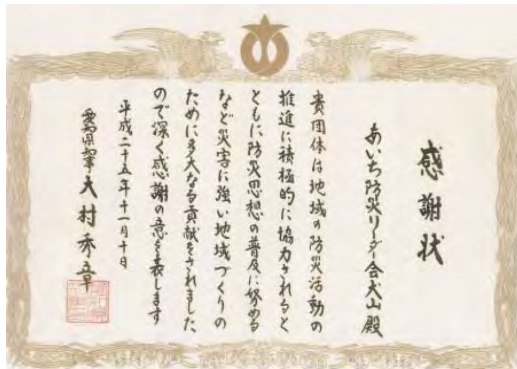 感謝状
あいち防災リーダー会犬山 殿
貴団体は地域の防災活動の
推進に積極的に協力されると
ともに防災思想の普及に努める
など災害に強い地域づくりの
ために多大なる貢献をされました
ので深く感謝の意を表します
平成二十五年十一月十日
愛知県知事 大村秀章